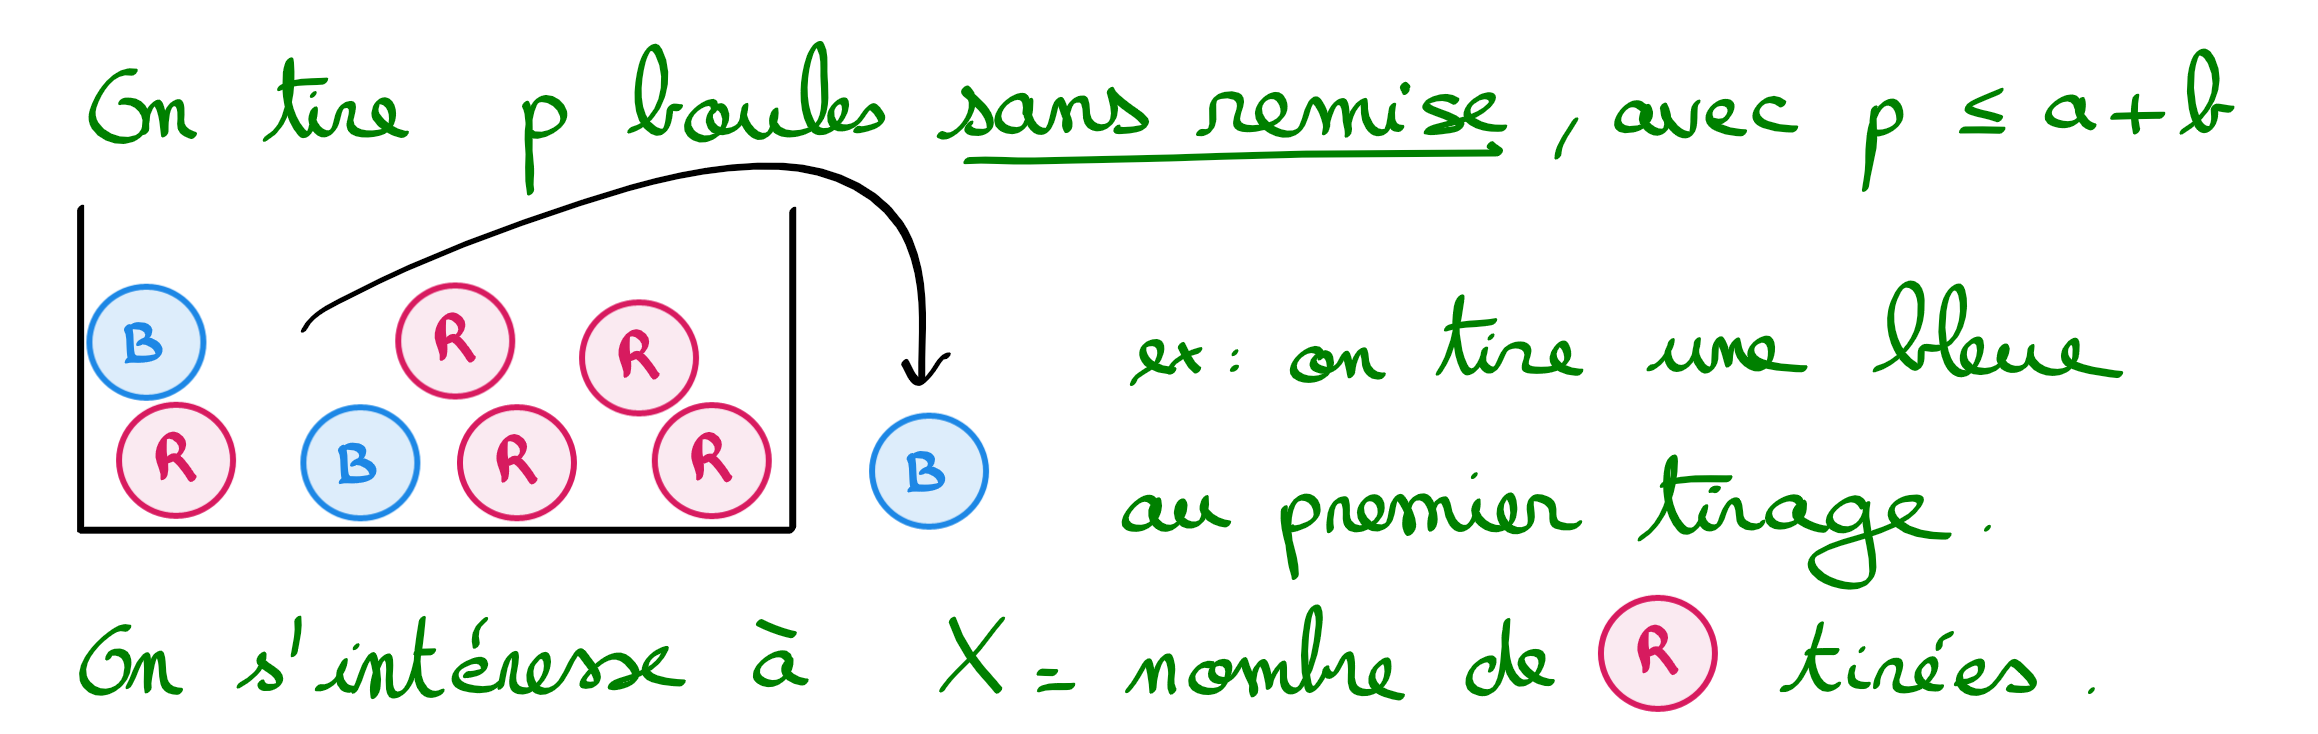 On tire p boules sans remise, avec p ≤ a+b
B R R
R B R R B
ex: on tire une bleue
au premier tirage.
On s'intéresse à X = nombre de R tirées.